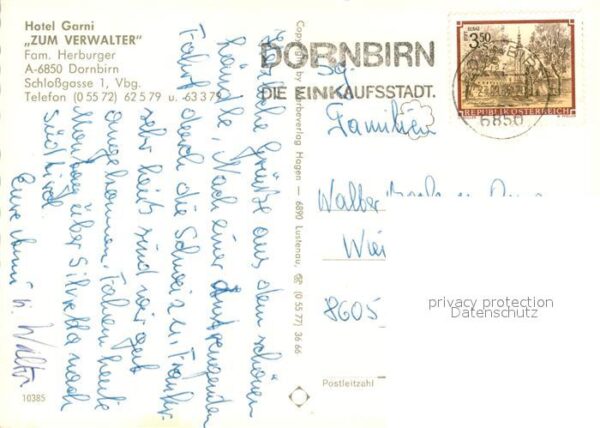 Hotel Garni
„ZUM VERWALTER"
Fam. Herburger
A-6850 Dornbirn
Schloßgasse 1, Vbg.
Telefon (0 55 72) 62 5 79 u. -63 3 79
Herzliche Grüße aus dem schönen
Ländle. Nach einer anstrengenden
Fahrt durch die Schweiz u. Frankr.
sehr heiß sind wir gut
angekommen. Fahren heute
über Silvretta nach
Südtirol.
Eure u. Walter
10385
Copyright by Werbeverlag Hagen — 6890 Lustenau, ☎ (0 55 77) 36 66
DORNBIRN
DIE EINKAUFSSTADT.
3.50
REPUBLIK ÖSTERREICH
6850
Familien
Walter
8605
Postleitzahl
privacy protection
Datenschutz